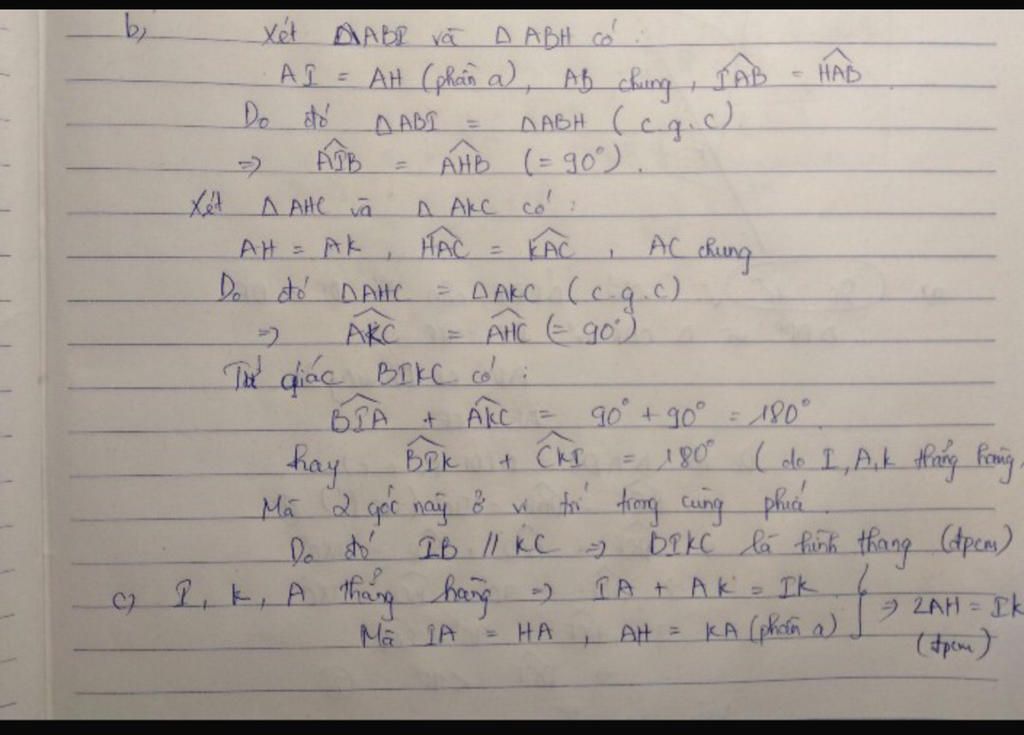 b, Xét ΔABI và ΔABH có:
AI = AH (phần a), AB chung, \widehat{IAB} = \widehat{HAB}
Do đó ΔABI = ΔABH (c.g.c)
=> \widehat{AIB} = \widehat{AHB} (= 90°).
Xét ΔAHC và ΔAKC có:
AH = AK, \widehat{HAC} = \widehat{KAC}, AC chung
Do đó ΔAHC = ΔAKC (c.g.c)
=> \widehat{AKC} = \widehat{AHC} (= 90°)
Tứ giác BIKC có:
\widehat{BIA} + \widehat{AKC} = 90° + 90° = 180°
hay \widehat{BIK} + \widehat{CKI} = 180° (do I, A, K thẳng hàng,
Mà 2 góc này ở vị trí trong cùng phía.
Do đó IB // KC => BIKC là hình thang (đpcm)
c) I, K, A thẳng hàng => IA + AK = IK
Mà IA = HA, AH = KA (phần a) } => 2AH = IK
(đpcm)